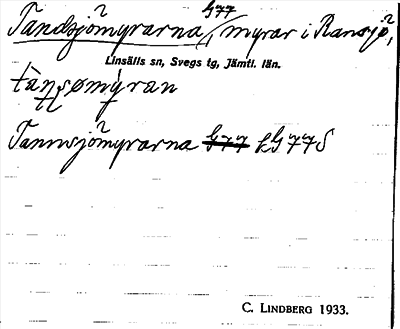 G77
Tandsjömyrarna, myrar i Ransjö,
Linsälls sn, Svegs tg, Jämtl. län.
tàn̥sømýran
Tannsjömyrarna G77 fG77S
C. LINDBERG 1933.